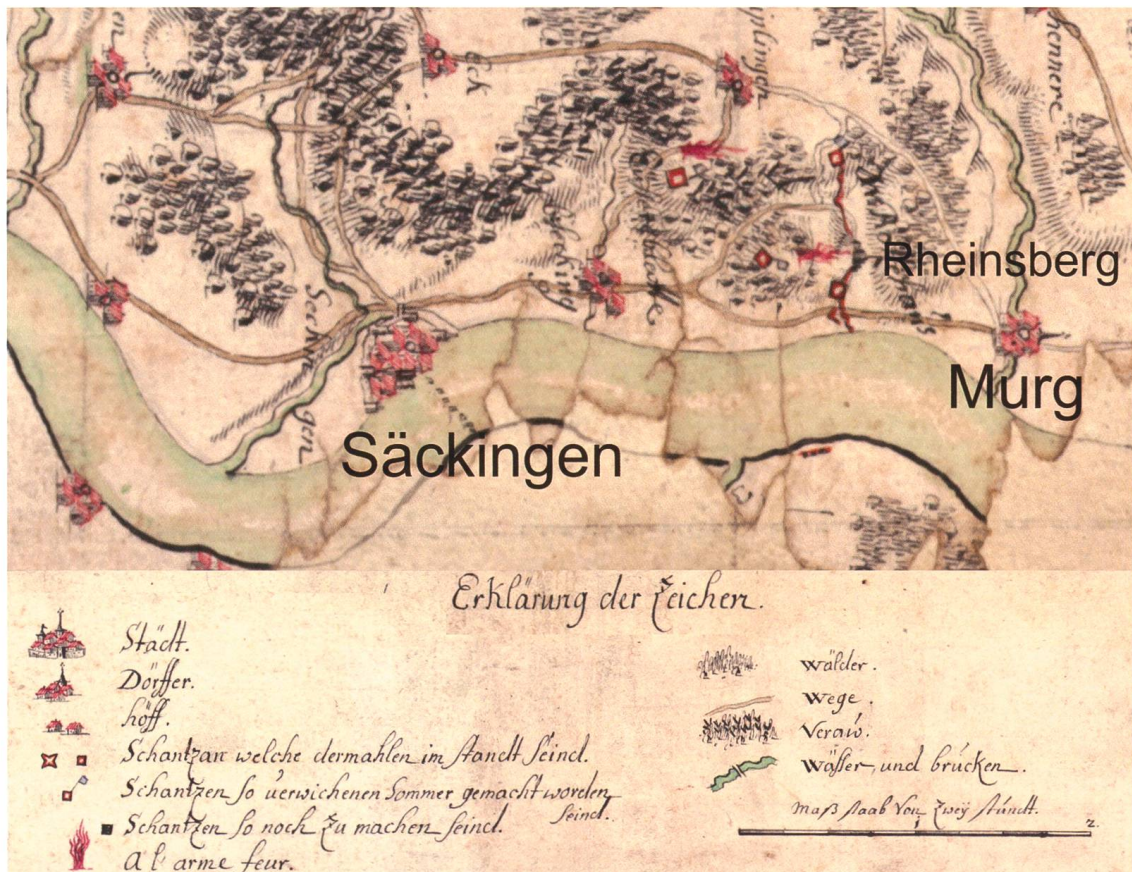 Rheinsberg
Murg
Säckingen
Seckingen
Erklärung der Zeichen.
Städt.
Dörffer.
höff.
Schantzen welche dermahlen im standt seind.
Schantzen so verwichenen Sommer gemacht worden seind.
Schantzen so noch zu machen seind.
al arme feur.
wälder.
Wege.
Verau.
wässer, und brücken.
Maß staab von Zweÿ stundt.
1
2.